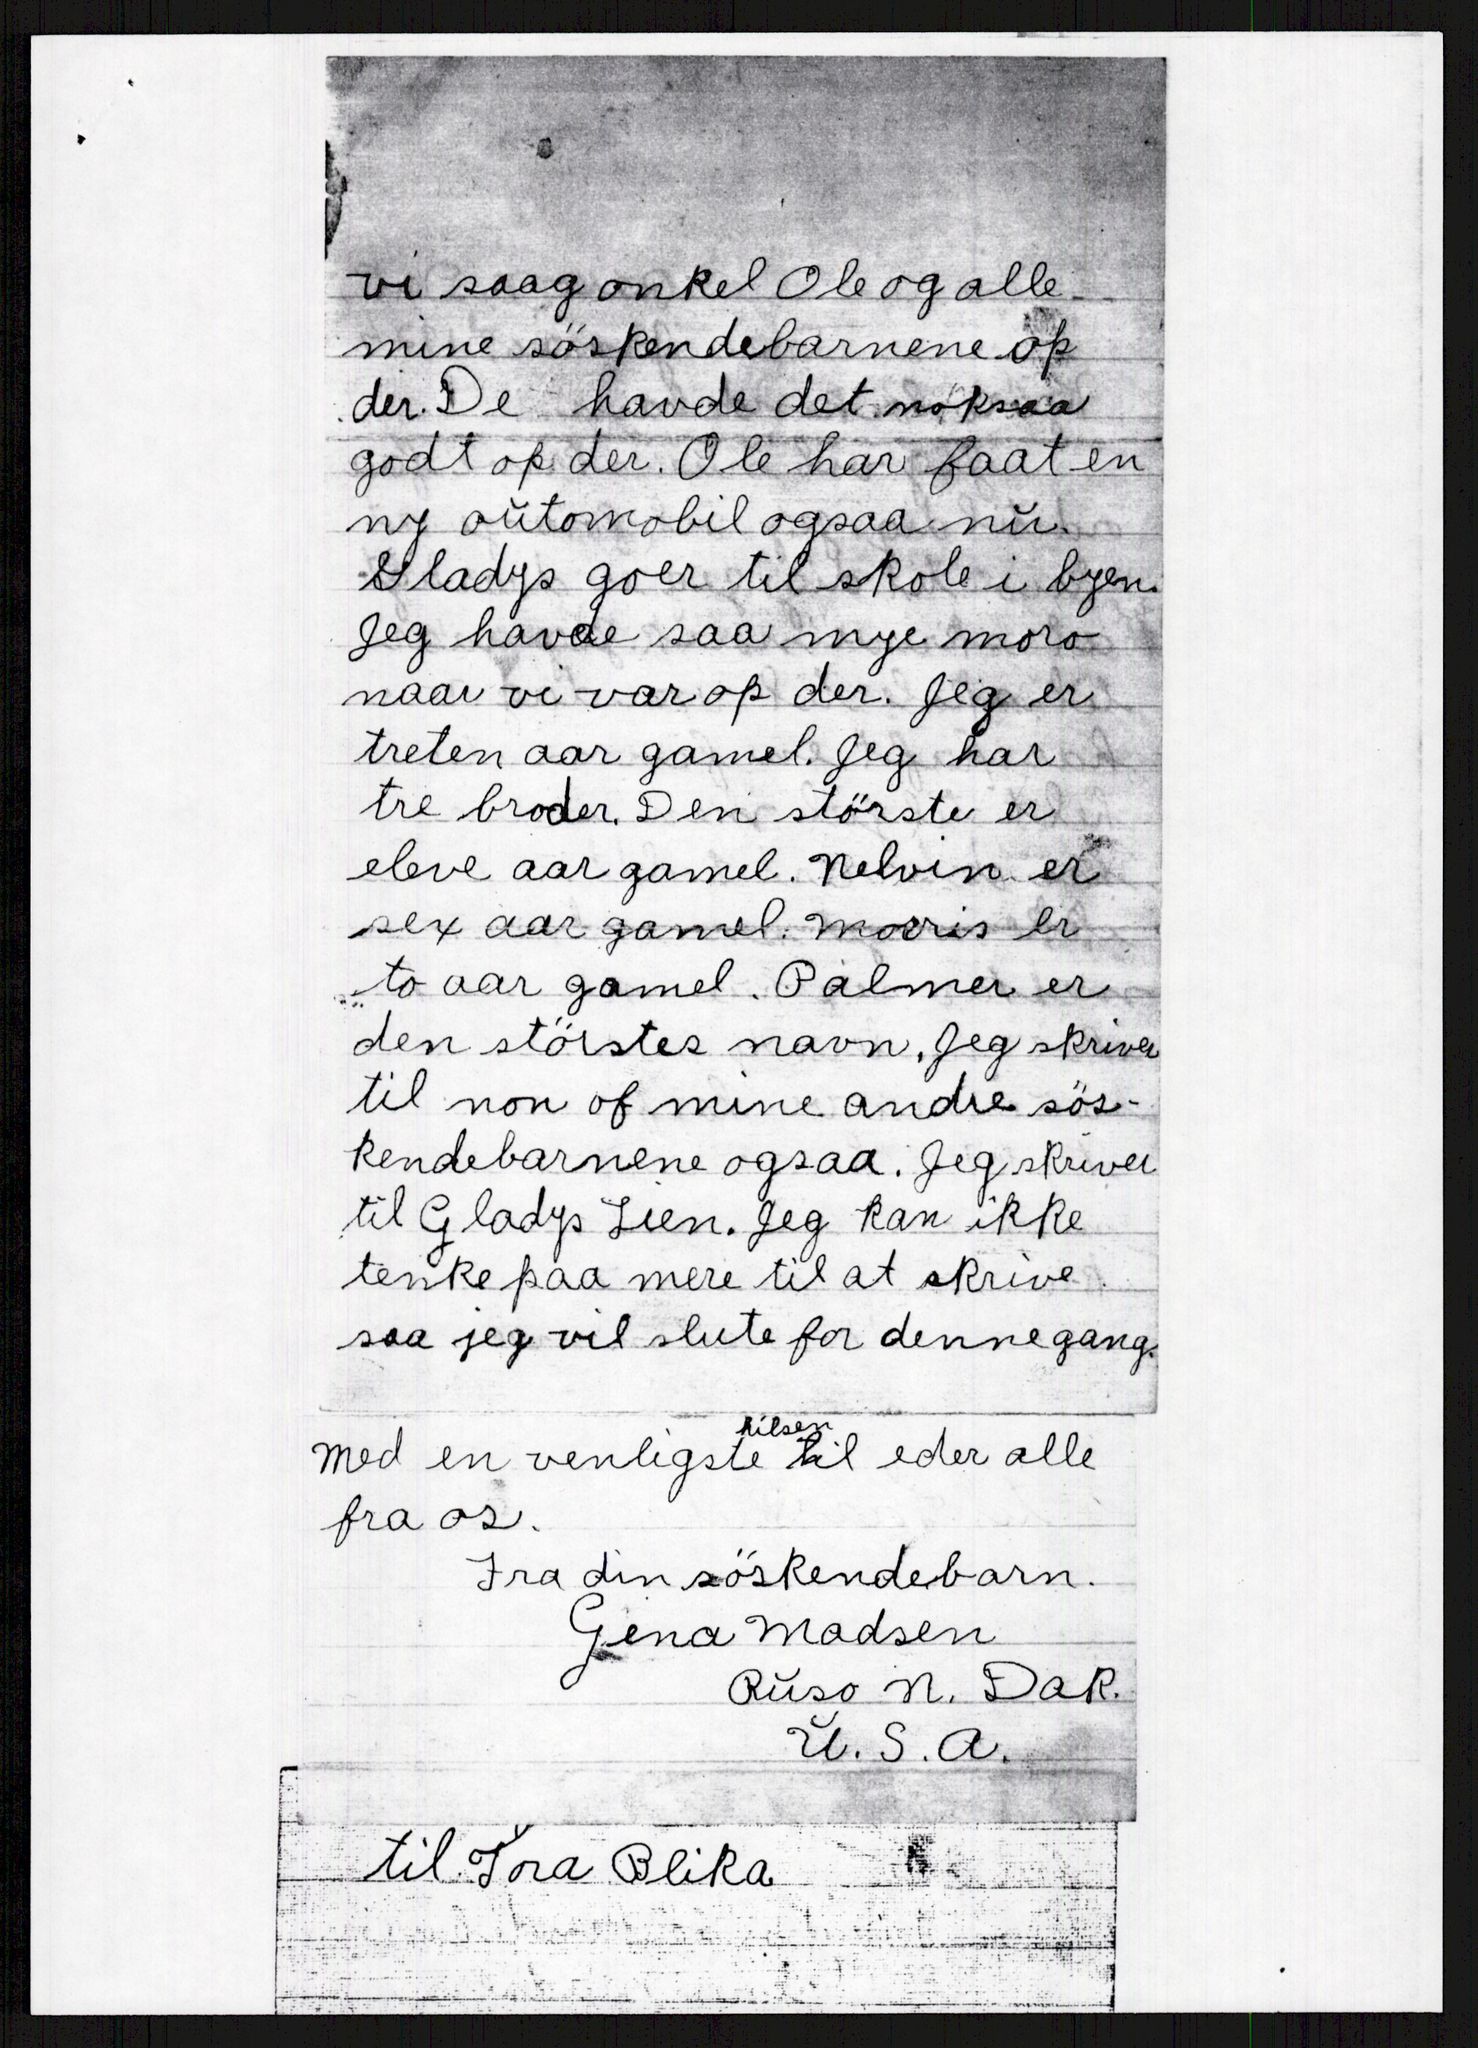 vi saag onkel Ole og alle
mine söskendebarnene op
der. De havde det noksaa
godt op der. Ole har faat en
ny automobil ogsaa nu.
Gladys goer til skole i byen.
Jeg havde saa mye moro
naar vi var op der. Jeg er
treten aar gamel. Jeg har
tre broder. Den störste er
eleve aar gamel. Nelvin er
sex aar gamel. Morris er
to aar gamel. Palmer er
den störstes navn. Jeg skriver
til non of mine andre sös-
kendebarnene ogsaa. Jeg skriver
til Gladys Lien. Jeg kan ikke
tenke paa mere til at skrive
saa jeg vil slute for denne gang.
Med en venligste hilsen til eder alle
fra os.
Fra din söskendebarn.
Gena Madsen
Ruso N. Dak.
U. S. A.
til Tora Blika